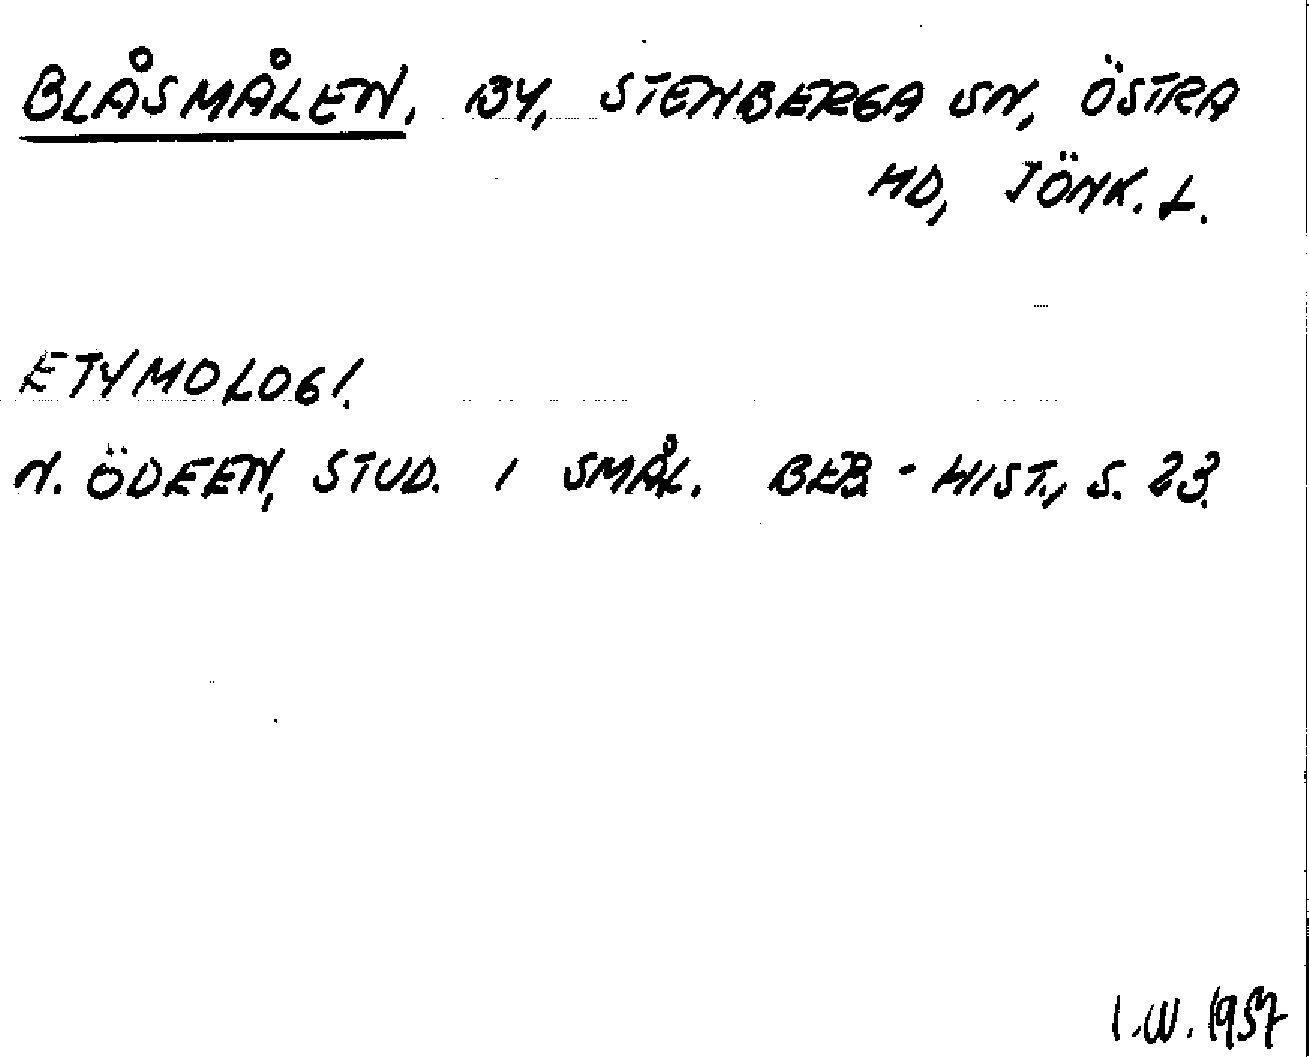 BLÅSMÅLEN. BY, STENBERGA SN, ÖSTRA
HD, JÖNK. L.
ETYMOLOGI.
N. ÖDEEN, STUD. I SMÅL. BEB.-HIST., S. 23.
I.W. 1957